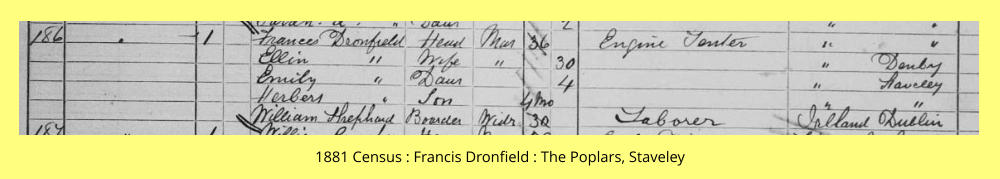 Daur 2
186 1 Frances Dronfield Head Mar 36 Engine Tenter " "
Ellin " Wife " 30 " Denby
Emily " Daur 4 " Staveley
Herbers " Son 4 Mo " "
William Shephard Boarder Widr 30 Laborer Irlland Dublin
187 1
1881 Census : Francis Dronfield : The Poplars, Staveley